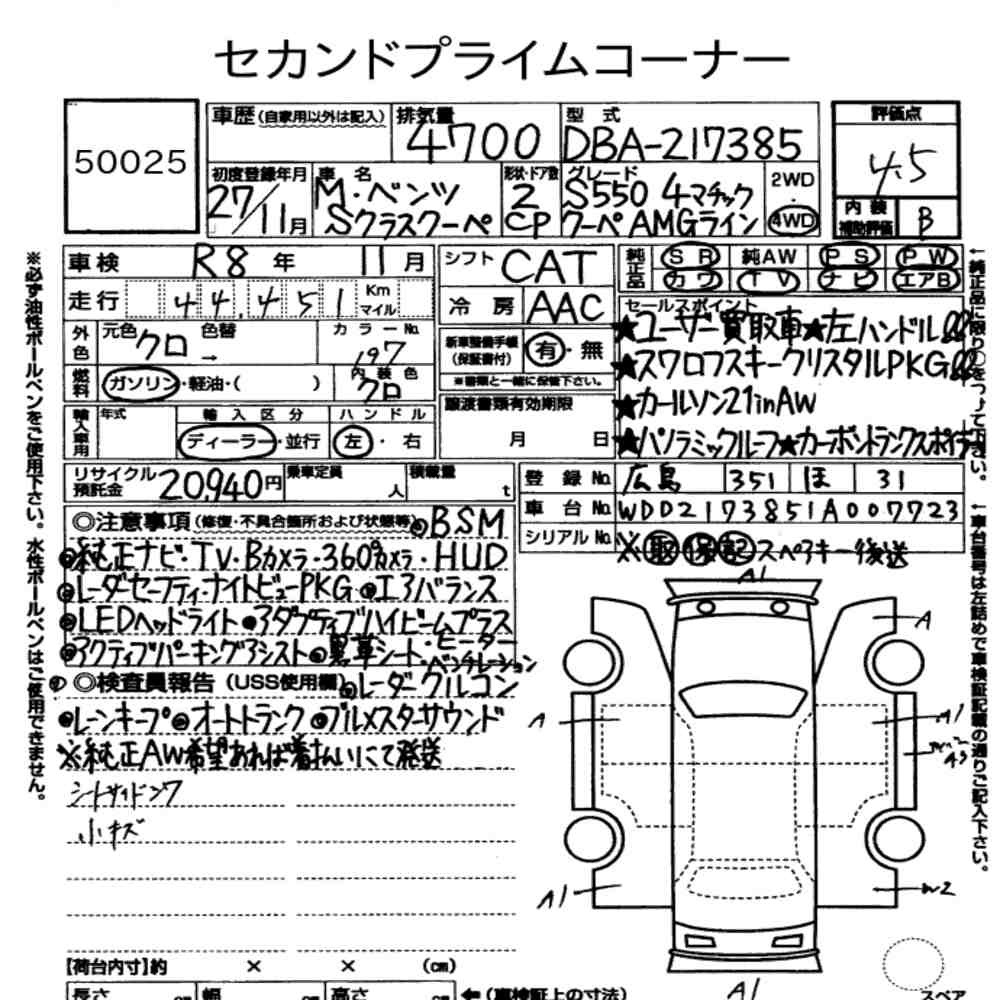 セカンドプライムコーナー
50025
車歴 (自家用以外は記入)
排気量 4700
型式 DBA-217385
評価点 4.5
初度登録年月 27/11月
車名 M・ベンツ Sクラスクーペ
形状・ドア数 2 CP
グレード S550 4マチック クーペAMGライン
2WD 4WD
内装補助評価 B
車検 R8年 11月
シフト CAT
純正品 SR 純AW PS PW
カワ TV ナビ エアB
走行 44,451 Km マイル
冷房 AAC
セールスポイント
★ユーザー買取車★左ハンドル!!
★スワロフスキークリスタルPKG!!
★カールソン21inAW
★パノラミックルーフ★カーボントランクスポイラー
外色 元色 クロ 色替 → カラーNo. 197
新車整備手帳 (保証書付) 有・無
※書類と一緒に保管下さい。
燃料 ガソリン・軽油・( ) 内装色 クロ
譲渡書類有効期限
月 日
輸入車用 年式 輸入区分 ハンドル
ディーラー・並行 左・右
リサイクル預託金 20,940円 乗車定員 人 積載量 t
登録No. 広島 351 ほ 31
車台No. WDD2173851A007723
シリアルNo. ※取保記スペアキー後送
◎注意事項 (修復・不具合箇所および状態等) ●BSM
●純正ナビ・TV・Bカメラ・360°カメラ・HUD
●レーダーセーフティ・ナイトビューPKG・●エアバランス
●LEDヘッドライト●アダプティブハイビームプラス
●アクティブパーキングアシスト●黒革シート・ヒーター・ベンチレーション
◎検査員報告 (USS使用欄) ●レーダークルコン
●レーンキープ●オートトランク●ブルメスターサウンド
※純正AW希望あれば着払いにて発送
シートサイドシワ
小キズ
A1
A
A
A1
A3
A1
W2
A1
【荷台内寸】約 × × (cm)
長さ cm 幅 cm 高さ cm ←(車検証上の寸法)
スペア
※必ず油性ボールペンをご使用下さい。水性ボールペンはご使用できません。
←純正品に限り○をつけて下さい。
←車台番号は左詰めで車検証記載の通りご記入下さい。